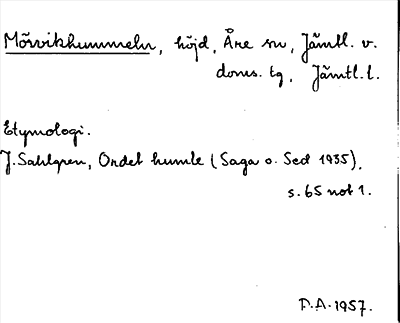 Mörvikhummeln, höjd, Åre sn, Jämtl. v.
doms. tg, Jämtl. l.
Etymologi.
J. Sahlgren, Ordet humle (Saga o. Sed 1935),
s. 65 not 1.
D.A. 1957.